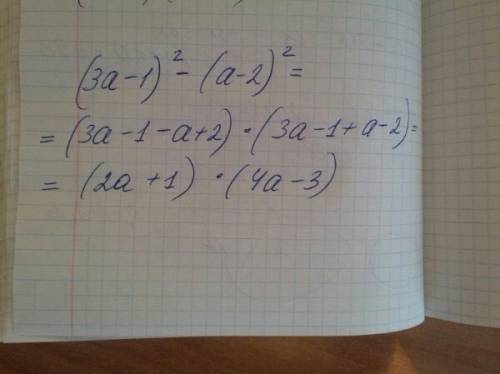 (3a-1)² - (a-2)² =
= (3a-1-a+2) · (3a-1+a-2) =
= (2a+1) · (4a-3)